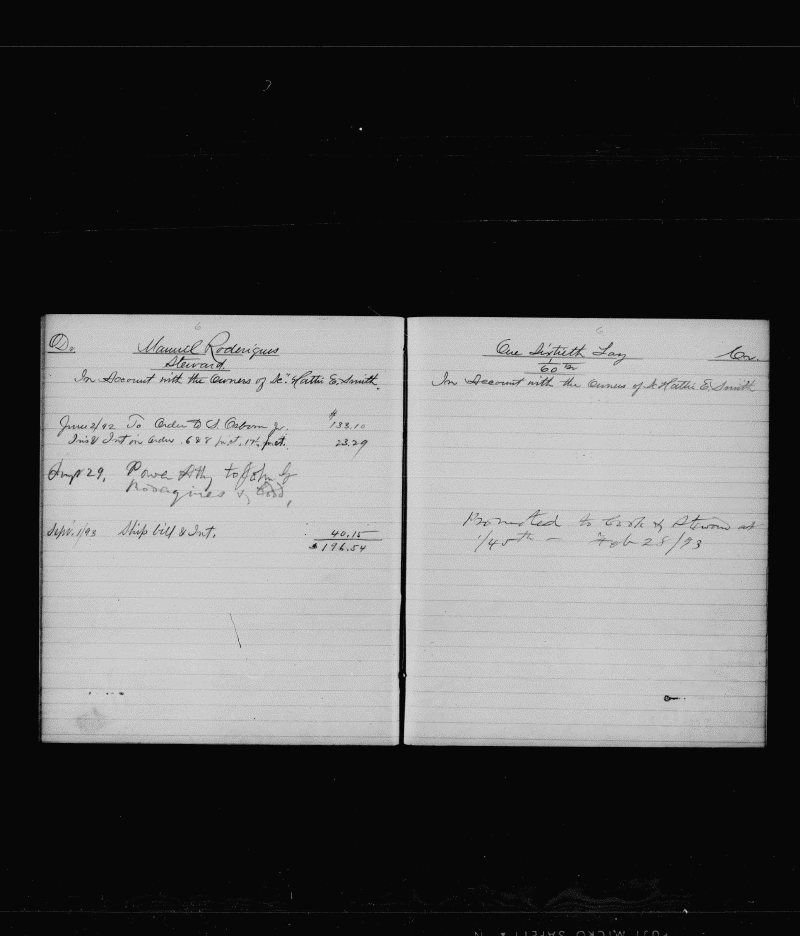 6
Dr. Manuel Roderigues
Steward
In Account with the Owners of Sc. Hattie E. Smith.
June 2/92 To Order D S Osborn Jr. $133.10
Ins & Int on Order . 17½ pr.ct. 23.29
29, Power Atty to John G
Rodrigues &
Sept. 1/93 Ship bill & Int. 40.15
$196.54
6
One Sixtieth Lay Cr.
60th
In Account with the Owners of Sc Hattie E. Smith
Promoted to Cook & Steward at
1/45th — Feb 28/93
FUJI MICRO SAFETY